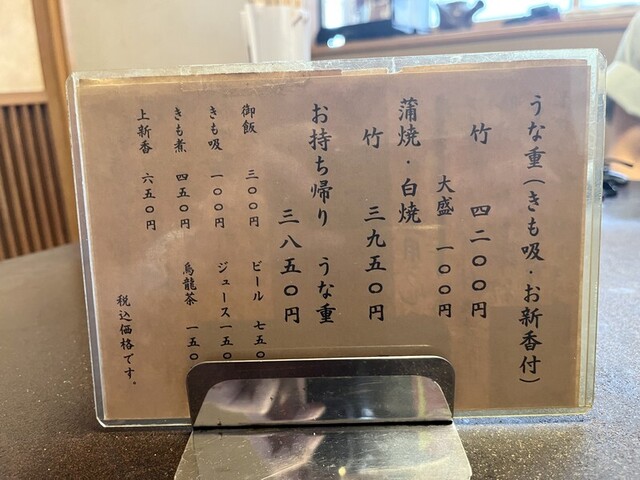 うな重（きも吸・お新香付）
竹 四二〇〇円
大盛 一〇〇円
蒲焼・白焼
竹 三九五〇円
お持ち帰り うな重
三八五〇円
御飯 三〇〇円
きも吸 一〇〇円
きも煮 四五〇円
上新香 六五〇円
ビール 七五〇
ジュース 一五〇
烏龍茶 一五〇
税込価格です。